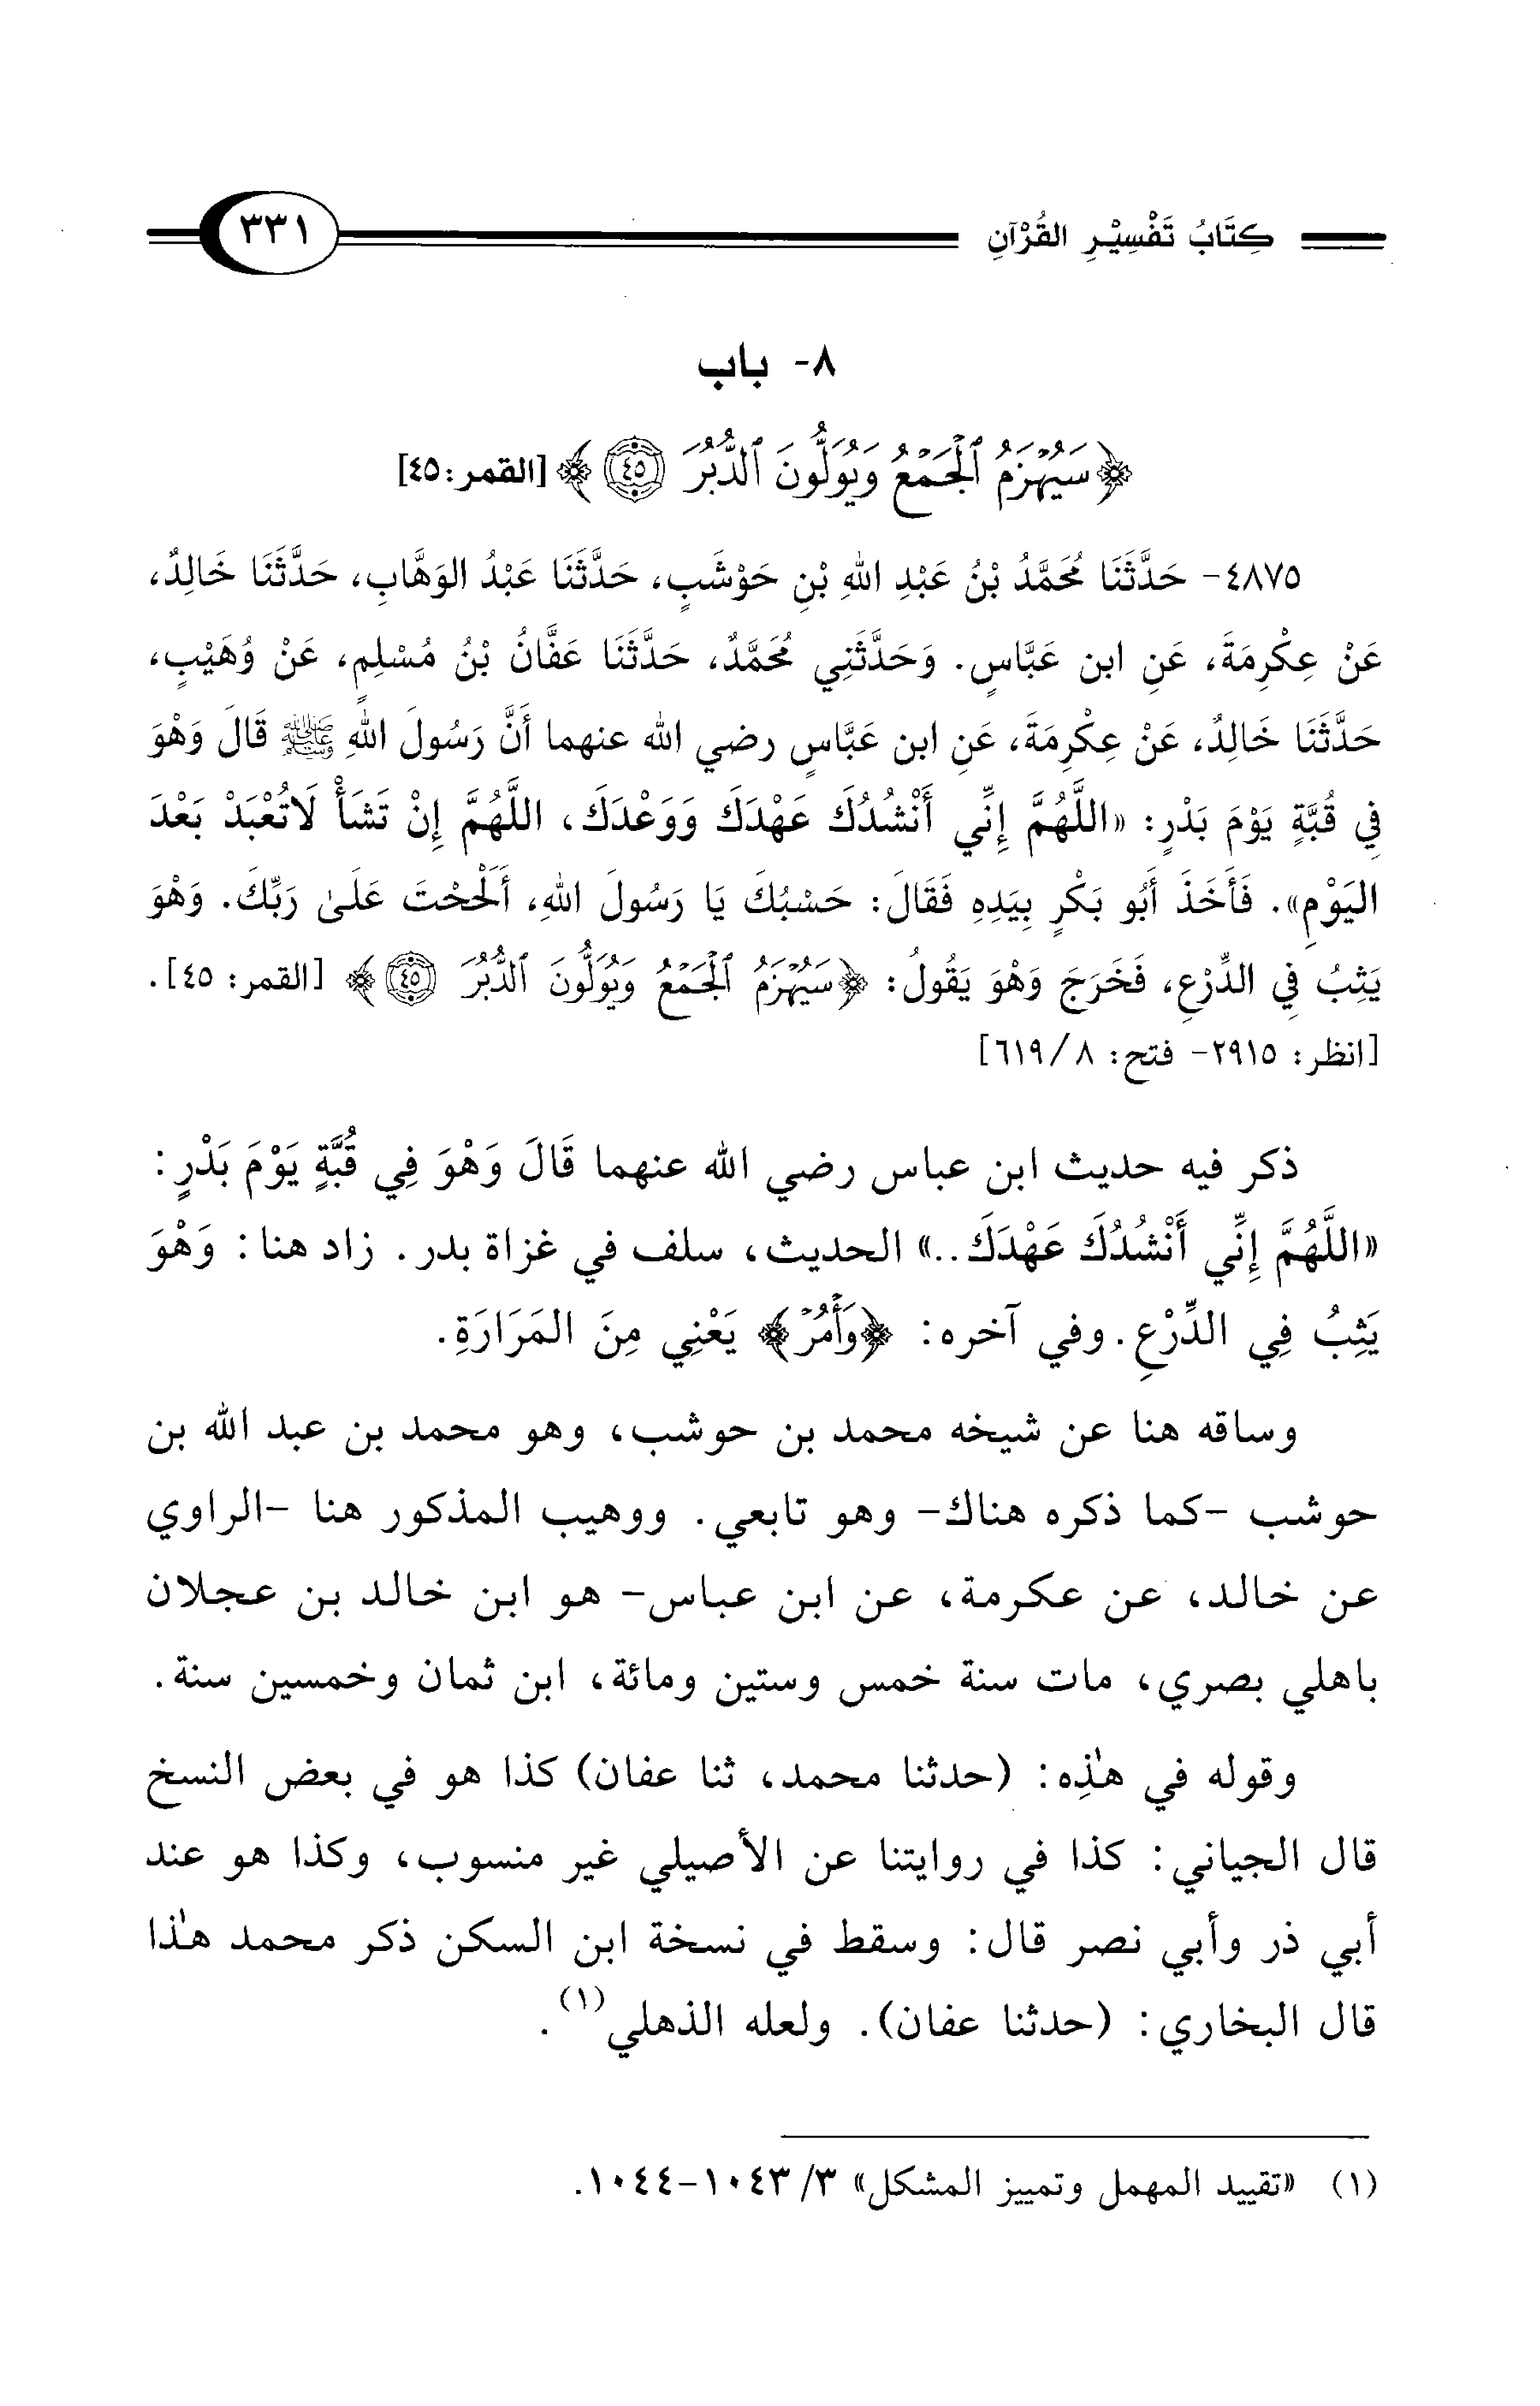 كِتَابُ تَفْسِيْرِ القُرْآنِ ٣٣١
٨- باب
﴿سَيُهْزَمُ ٱلْجَمْعُ وَيُوَلُّونَ ٱلدُّبُرَ ٤٥﴾ [القمر: ٤٥]
٤٨٧٥- حَدَّثَنَا مُحَمَّدُ بْنُ عَبْدِ اللهِ بْنِ حَوْشَبٍ، حَدَّثَنَا عَبْدُ الوَهَّابِ، حَدَّثَنَا خَالِدٌ،
عَنْ عِكْرِمَةَ، عَنِ ابن عَبَّاسٍ. وَحَدَّثَنِي مُحَمَّدٌ، حَدَّثَنَا عَفَّانُ بْنُ مُسْلِمٍ، عَنْ وُهَيْبٍ،
حَدَّثَنَا خَالِدٌ، عَنْ عِكْرِمَةَ، عَنِ ابن عَبَّاسٍ رضي الله عنهما أَنَّ رَسُولَ اللهِ ﷺ قَالَ وَهْوَ
فِي قُبَّةٍ يَوْمَ بَدْرٍ: «اللَّهُمَّ إِنِّي أَنْشُدُكَ عَهْدَكَ وَوَعْدَكَ، اللَّهُمَّ إِنْ تَشَأْ لَاتُعْبَدْ بَعْدَ
اليَوْمِ». فَأَخَذَ أَبُو بَكْرٍ بِيَدِهِ فَقَالَ: حَسْبُكَ يَا رَسُولَ اللهِ، أَلْحَحْتَ عَلَىٰ رَبِّكَ. وَهْوَ
يَثِبُ فِي الدِّرْعِ، فَخَرَجَ وَهْوَ يَقُولُ: ﴿سَيُهْزَمُ ٱلْجَمْعُ وَيُوَلُّونَ ٱلدُّبُرَ ٤٥﴾ [القمر: ٤٥].
[انظر: ٢٩١٥- فتح: ٨/ ٦١٩]
ذكر فيه حديث ابن عباس رضي الله عنهما قَالَ وَهْوَ فِي قُبَّةٍ يَوْمَ بَدْرٍ:
«اللَّهُمَّ إِنِّي أَنْشُدُكَ عَهْدَكَ..» الحديث، سلف في غزاة بدر. زاد هنا: وَهْوَ
يَثِبُ فِي الدِّرْعِ. وفي آخره: ﴿وَأَمَرُّ﴾ يَعْنِي مِنَ المَرَارَةِ.
وساقه هنا عن شيخه محمد بن حوشب، وهو محمد بن عبد الله بن
حوشب -كما ذكره هناك- وهو تابعي. ووهيب المذكور هنا -الراوي
عن خالد، عن عكرمة، عن ابن عباس- هو ابن خالد بن عجلان
باهلي بصري، مات سنة خمس وستين ومائة، ابن ثمان وخمسين سنة.
وقوله في هٰذِه: (حدثنا محمد، ثنا عفان) كذا هو في بعض النسخ
قال الجياني: كذا في روايتنا عن الأصيلي غير منسوب، وكذا هو عند
أبي ذر وأبي نصر قال: وسقط في نسخة ابن السكن ذكر محمد هٰذا
قال البخاري: (حدثنا عفان). ولعله الذهلي(١).
(١) «تقييد المهمل وتمييز المشكل» ٣/ ١٠٤٣-١٠٤٤.